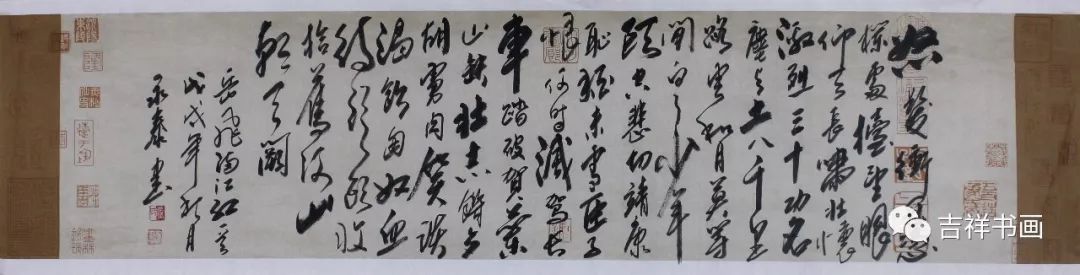 怒髮衝冠憑
欄處擡望眼
仰天長嘯壯懷
激烈三十功名
塵與土八千里
路雲和月莫等
閒白了少年
頭空悲切靖康
恥猶未雪臣子
恨何時滅駕長
車踏破賀蘭
山缺壯志飢餐
胡虜肉笑談
渴飲匈奴血
待從頭收
拾舊河山
朝天闕
岳飛滿江紅
戊戌年秋月
泰書
吉祥书画